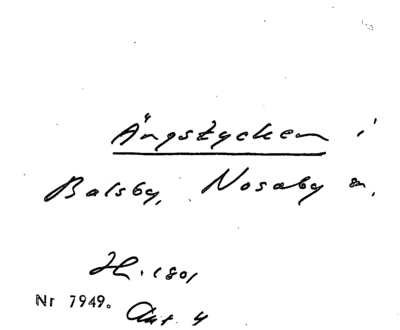 Ängstycken i
Balsby, Nosaby sn.
H. 1801
Nr 7949. Akt. 4